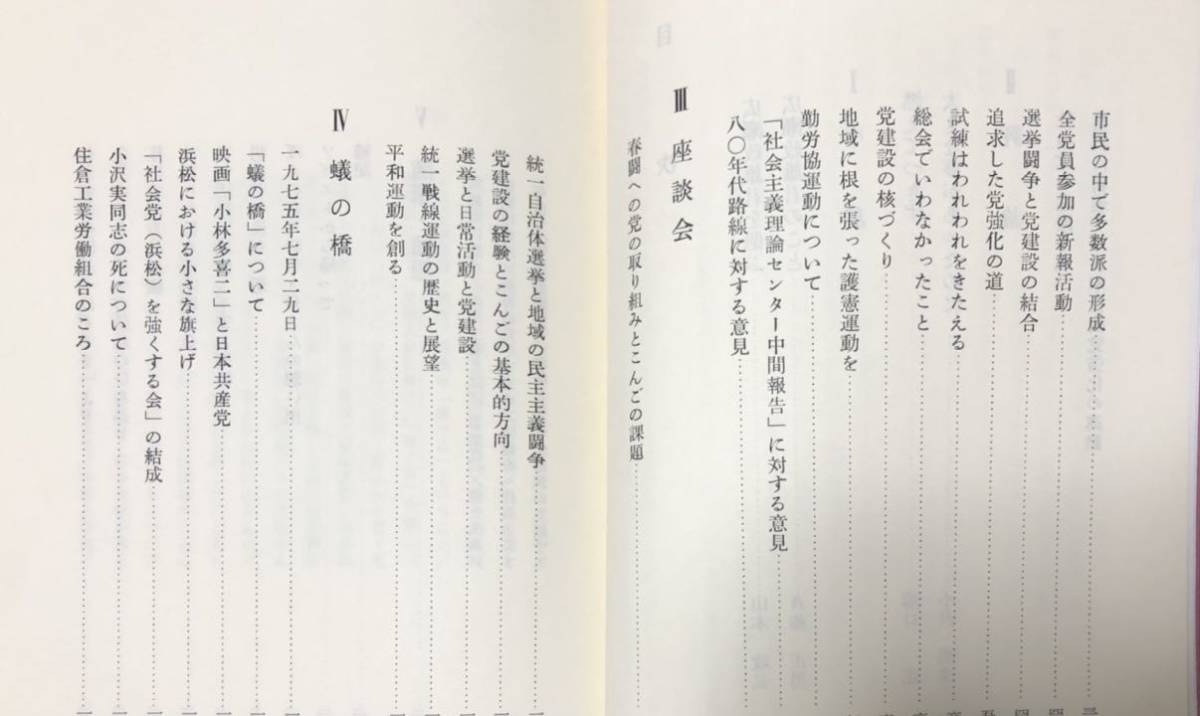 市民の中で多数派の形成
全党員参加の新報活動
選挙闘争と党建設の結合
追求した党強化の道
試練はわれわれをきたえる
総会でいわなかったこと
党建設の核づくり
地域に根を張った護憲運動を
勤労協運動について
「社会主義理論センター中間報告」に対する意見
八〇年代路線に対する意見
Ⅲ 座談会
春闘への党の取り組みとこんごの課題
統一自治体選挙と地域の民主主義闘争
党建設の経験とこんごの基本的方向
選挙と日常活動と党建設
統一戦線運動の歴史と展望
平和運動を創る
Ⅳ 蟻の橋
一九七五年七月二九日
「蟻の橋」について
映画「小林多喜二」と日本共産党
浜松における小さな旗上げ
「社会党（浜松）を強くする会」の結成
小沢実同志の死について
住倉工業労働組合のころ